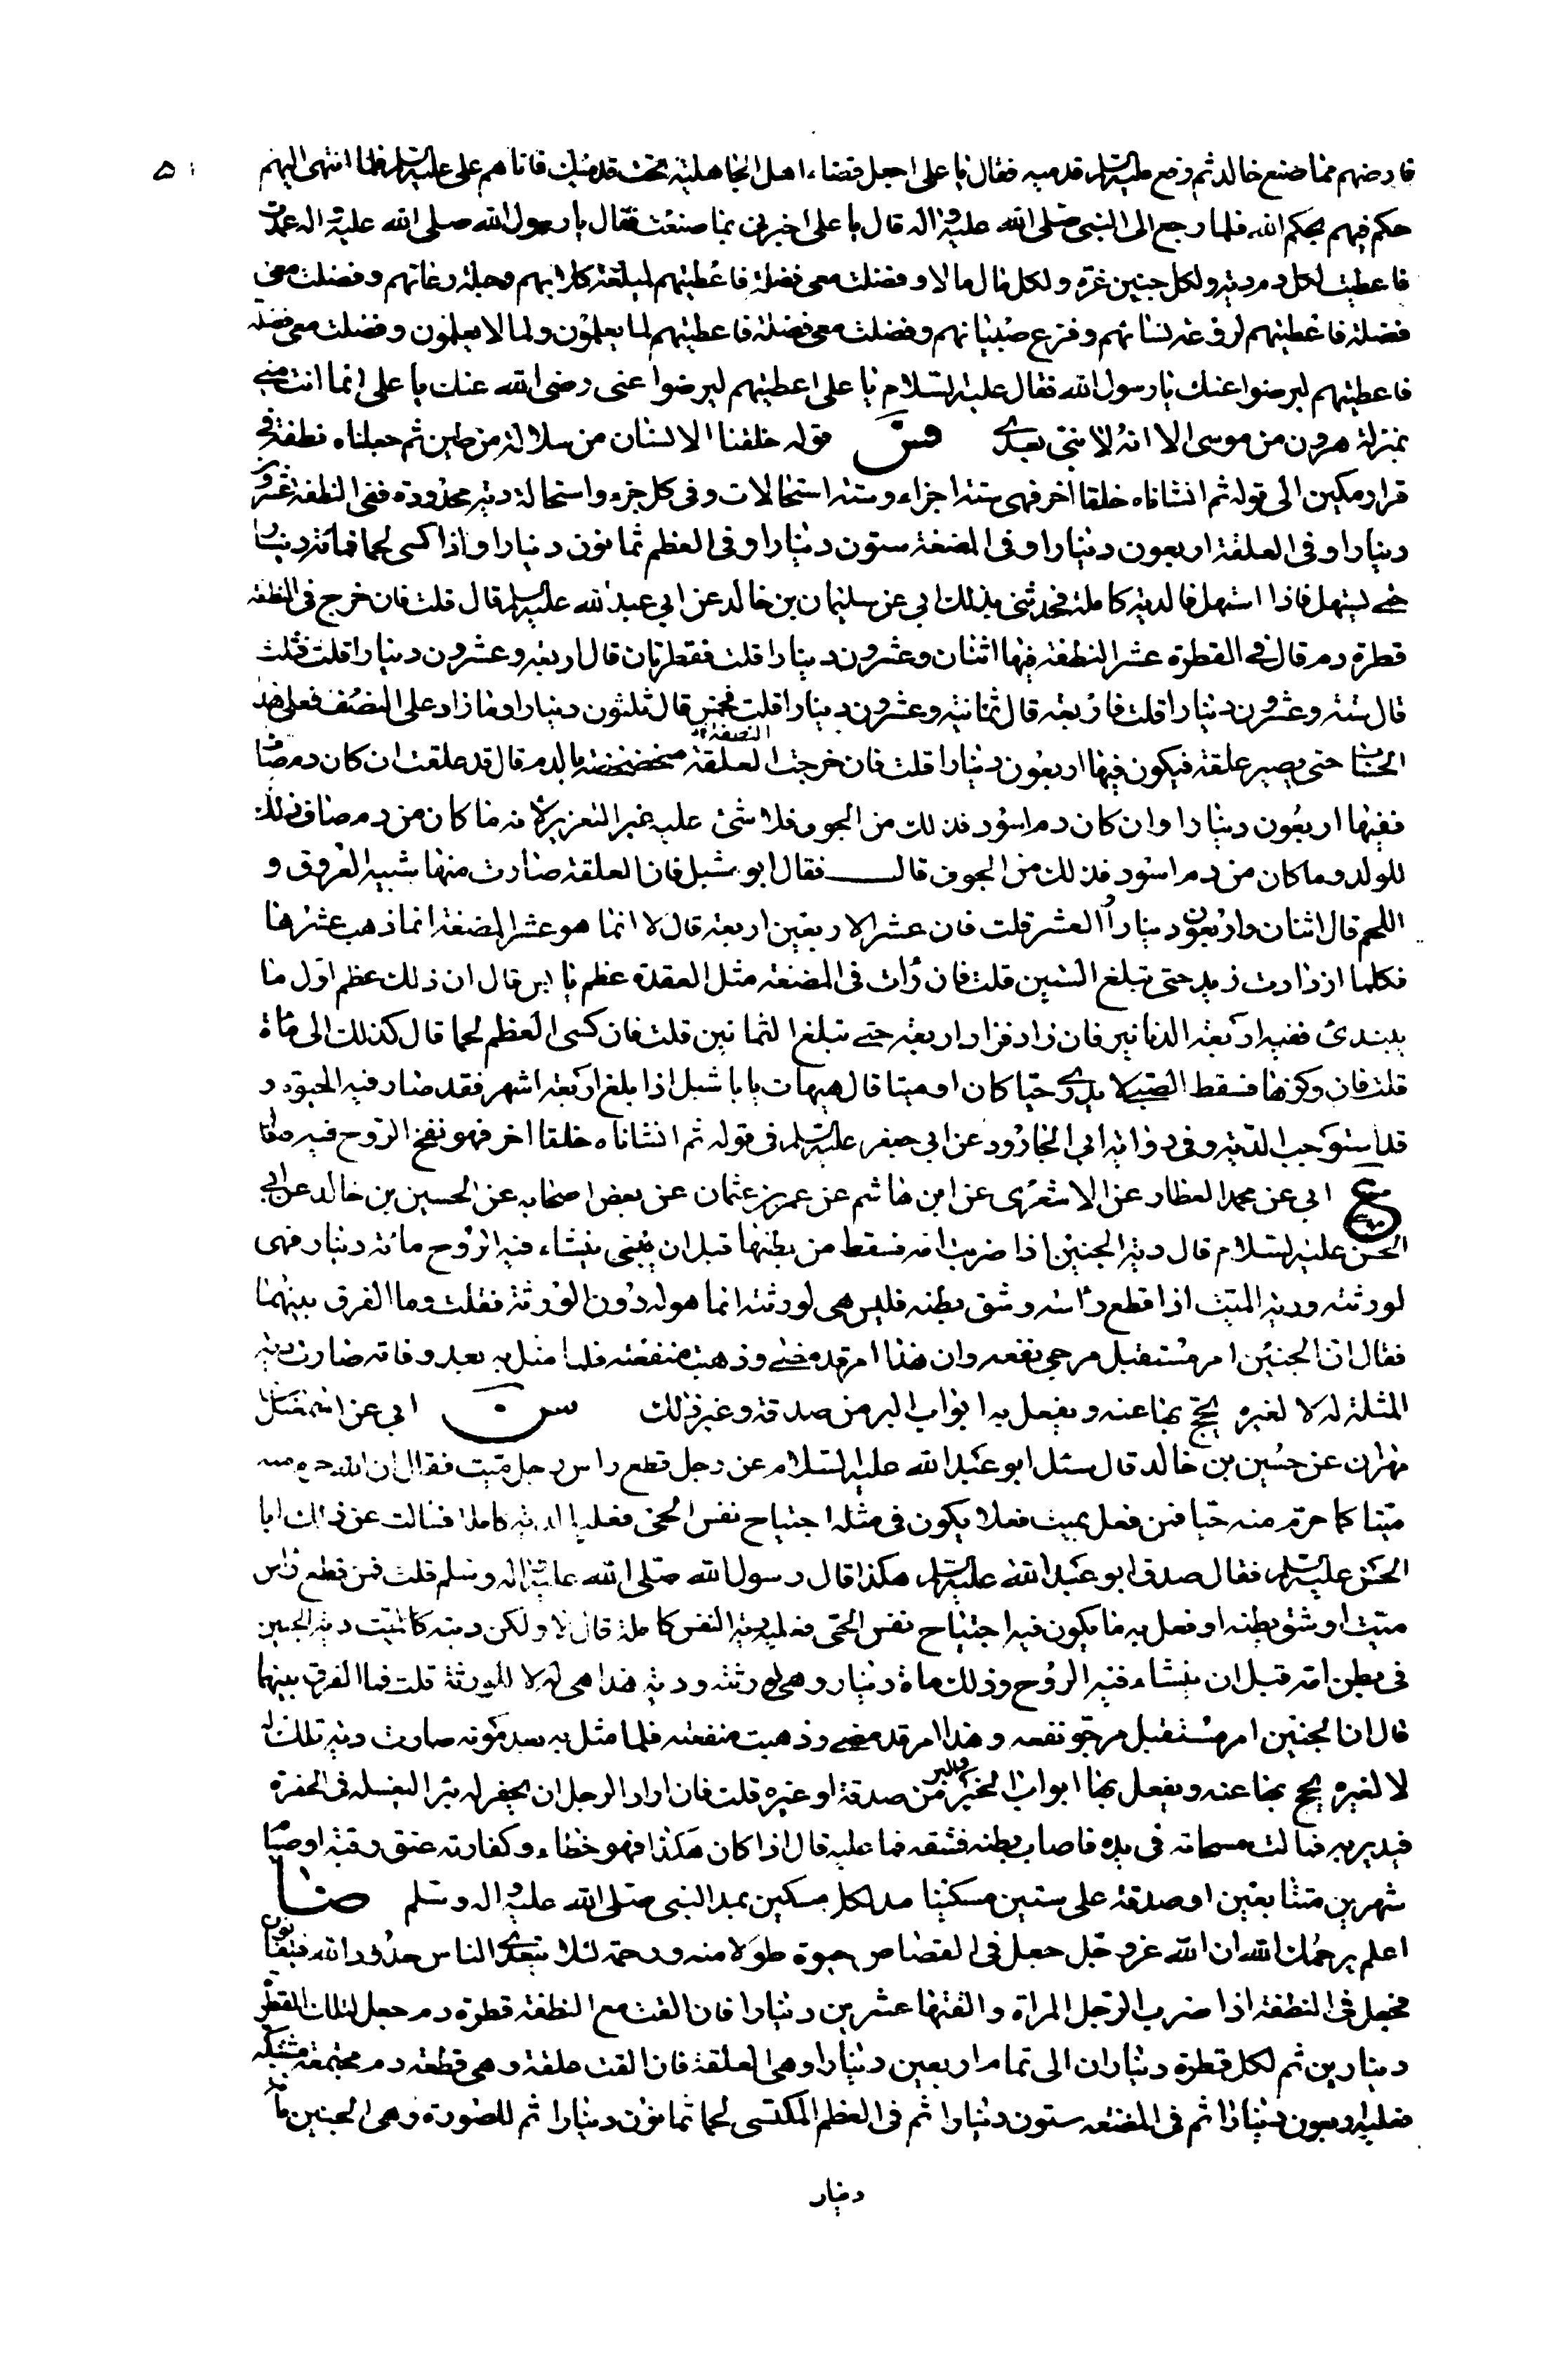 فارضهم مما صنع خالد ثم رفع عليه السلام قدميه فقال يا على اجعل قضاء اهل الجاهلية تحت قدميك فاتاهم على عليه السلم فلما انتهى اليهم
حكم فيهم بحكم الله فلما رجع الى النبى صلى الله عليه واله قال يا على اخبرنى بما صنعت فقال يا رسول الله صلى الله عليه واله عمدت
فاعطيت لكل دم دية ولكل جنين غرة ولكل مال مالا وفضلت معى فضلة فاعطيتهم لميلغة كلابهم وحبلة رعاتهم وفضلت معى
فضلة فاعطيتهم لروعة نسائهم وفزع صبيانهم وفضلت معى فضلة فاعطيتهم لما يعلمون ولما لا يعلمون وفضلت معى فضلة
فاعطيتهم ليرضوا عنك يا رسول الله فقال عليه السلام يا على اعطيتهم ليرضوا عنى رضى الله عنك يا على انما انت منى
بمنزلة هرون من موسى الا انه لا نبى بعدى فس قوله خلقنا الانسان من سلالة من طين ثم جعلناه نطفة فى
قرار مكين الى قوله ثم انشاناه خلقا اخر فهى ستة اجزاء وستة استحالات وفى كل جزء واستحالة دية محدودة ففى النطفة عشرون
دينارا وفى العلقة اربعون دينارا وفى المضغة ستون دينارا وفى العظم ثمانون دينارا واذا كسى لحما فمائة دينار
حتى يستهل فاذا استهل فالدية كاملة فحدثنى بذلك ابى عن سليمان بن خالد عن ابى عبد الله عليه السلم قال قلت فان خرج فى النطفة
قطرة دم قال فى القطرة عشر النطفة فيها اثنان وعشرون دينارا قلت فقطرتان قال اربعة وعشرون دينارا قلت فثلث
قال ستة وعشرون دينارا قلت فاربعة قال ثمانية وعشرون دينارا قلت فخمس قال ثلثون دينارا وما زاد على النصف فعلى هذا
الحساب حتى يصير علقة فيكون فيها اربعون دينارا قلت فان خرجت النطفة متخضخضة بالدم قال قد علقت ان كان دم صاف
ففيها اربعون دينارا وان كان دم اسود فذلك من الجوف فلا شئ عليه غير التعزير لانه ما كان من دم صاف فذلك
للولد وما كان من دم اسود فذلك من الجوف قال فقال ابو شبل فان العلقة صارت منها شبيه العروق و
اللحم قال اثنان واربعون دينارا العشر قلت فان عشر الاربعين اربعة قال لا انما هو عشر المضغة انما ذهب عشرها
فكلما ازدادت زيد حتى تبلغ الستين قلت فان رات فى المضغة مثل العقدة عظم يابس قال ان ذلك عظم اول ما
يبتدئ ففيه اربعة الدنانير فان زاد فزاد اربعة حتى تبلغ الثمانين قلت فان كسى العظم لحما قال كذلك الى مأة
قلت فان وكزها فسقط الصبى لا يدرى حيا كان او ميتا قال هيهات يا با شبل اذا بلغ اربعة اشهر فقد صار فيه الحيوة و
قد استوجب الدية وفى رواية ابى الجارود عن ابى جعفر عليه السلم فى قوله ثم انشاناه خلقا اخر فهو نفخ الروح فيه
ع ابى عن محمد العطار عن الاشعرى عن ابن هاشم عن عمرو بن عثمان عن بعض اصحابه عن الحسين بن خالد عن ابى
الحسن عليه السلام قال دية الجنين اذا ضربت امه فسقط من بطنها قبل ان ينشاء فيه الروح مائة دينار فهى
لورثته ودية الميت اذا قطع راسه وشق بطنه فليس هى لورثته انما هو له دون الورثة فقلت وما الفرق بينهما
فقال ان الجنين امر مستقبل مرجى نفعه وان هذا امر قد مضى وذهبت منفعته فلما مثل به بعد وفاته صارت دية
المثلة له لا لغيره يحج بها عنه ويفعل به ابواب البر من صدقة وغير ذلك سن ابى عن اسمعيل
مهران عن حسين بن خالد قال سئل ابو عبد الله عليه السلام عن رجل قطع راس رجل ميت فقال ان الله حرم منه
ميتا كما حرم منه حيا فمن فعل بميت فعلا يكون فى مثله اجتياح نفس الحى فعليه الدية كاملا فسالت عن ذلك ابا
الحسن عليه السلم فقال صدق ابو عبد الله عليه السلم هكذا قال رسول الله صلى الله عليه واله وسلم قلت فمن قطع راس
ميت او شق بطنه او فعل به ما يكون فيه اجتياح نفس الحى فعليه دية النفس كاملة قال لا ولكن ديته كانت دية الجنين
فى بطن امه قبل ان ينشاء فيه الروح وذلك مأة دينار وهى لورثته ودية هذا هى له لا للورثة قلت فما الفرق بينهما
قال ان الجنين امر مستقبل مرجو نفعه وهذا امر قد مضى وذهبت منفعته فلما مثل به بعد موته صارت ديته تلك له
لا لغيره يحج بها عنه ويفعل بها ابواب الخير والبر من صدقة او غيره قلت فان اراد الرجل ان يحفر له بئرا ليغسله فى الحفرة
فيدير به فمالت مسحاته فى يده فاصاب بطنه فشقه فما عليه قال اذا كان هكذا فهو خطاء وكفارته عتق رقبة او صيام
شهرين متتابعين او صدقة على ستين مسكينا مد لكل مسكين بمد النبى صلى الله عليه واله وسلم ضا
اعلم يرحمك الله ان الله عز وجل جعل فى القصاص حيوة طولا منه ورحمة لئلا يتعدى الناس حدود الله فيتفانون
فجعل فى النطفة اذا ضرب الرجل المراة والقتها عشرين دينارا فان القت مع النطفة قطرة دم جعل لتلك القطرة
دينارين ثم لكل قطرة ديناران الى تمام اربعين دينارا وهى العلقة فان القت علقة وهى قطعة دم مجتمعة مشتبكة
فعليه اربعون دينارا ثم فى المضغة ستون دينارا ثم فى العظم المكتسى لحما ثمانون دينارا ثم للصورة وهى الجنين مأة
دينار